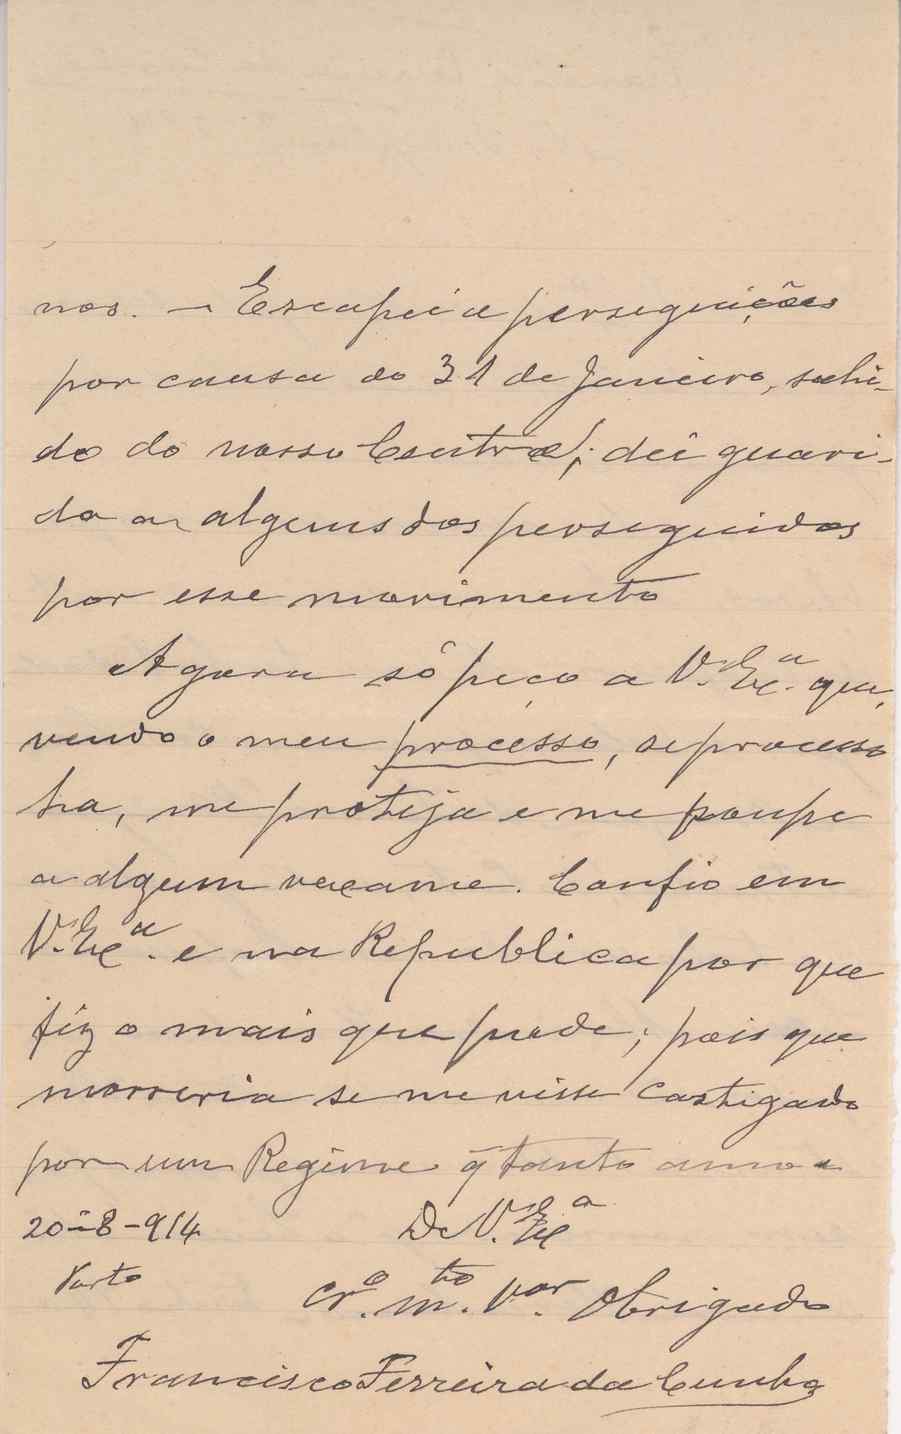 nos. — Escapei a perseguições
por causa do 31 de Janeiro, sahi-
do do nosso Centro!; dei guari-
da a alguns dos perseguidos
por esse movimento
Agora só peço a V. Exª. que,
vendo o meu processo, se processo
ha, me proteja e me poupe
a algum vexame. Confio em
V. Exª. e na Republica por que
fiz o mais que pude; pois que
morreria se me visse castigado
por um Regime q̃ tanto amo
20-8-914 De V. Exª
Porto
Crº. mtº. Vor. Obrigado
Francisco Ferreira da Cunha